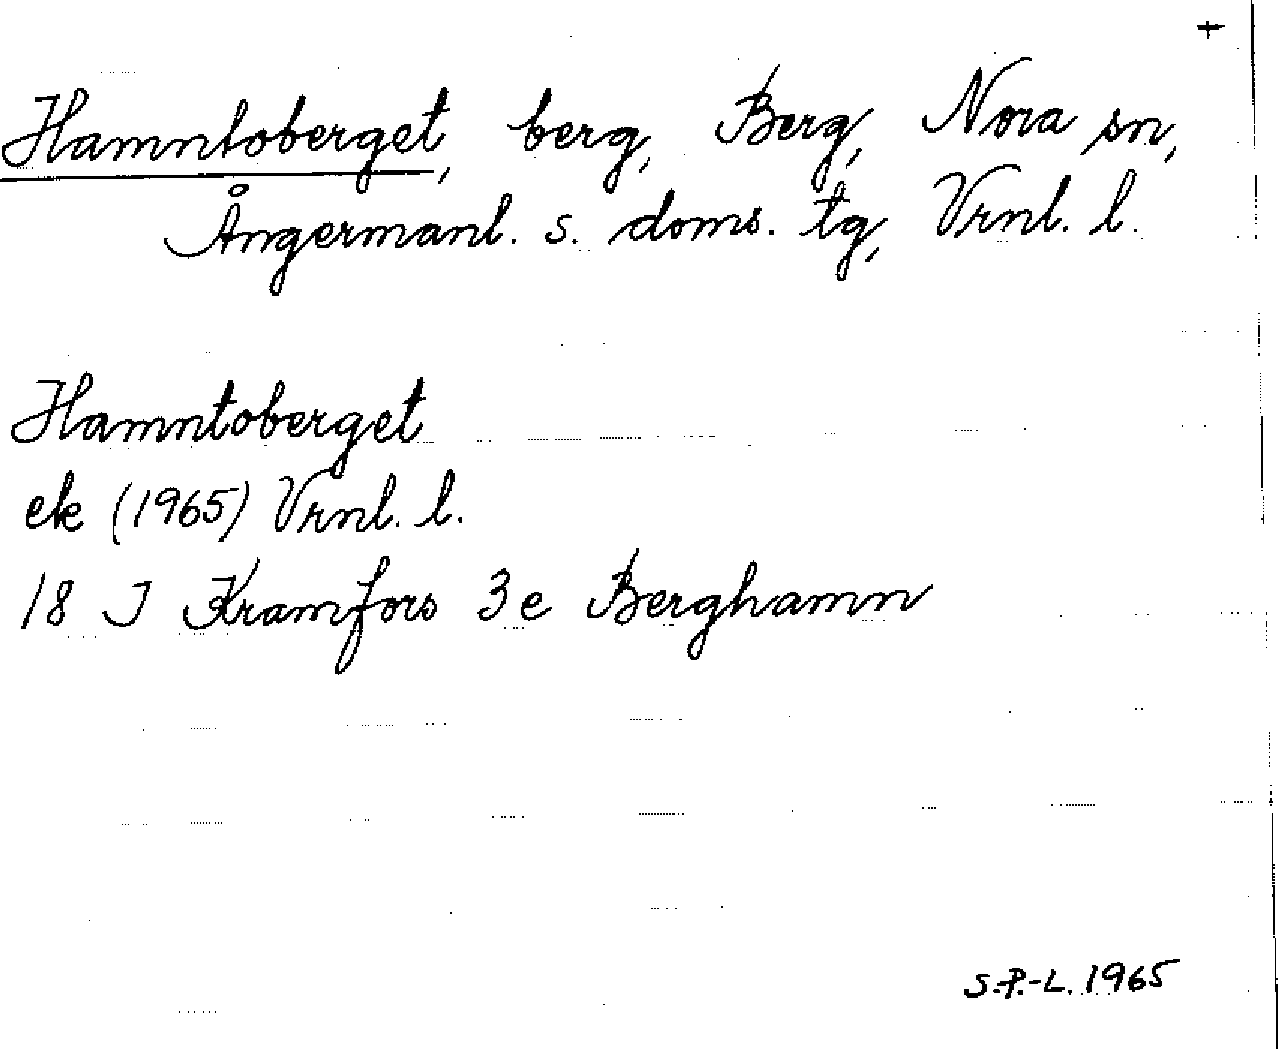 +
Hamntoberget, berg, Berg, Nora sn,
Ångermanl. s. doms. tg, Vrnl. l.
Hamntoberget
ek (1965) Vrnl. l.
18 J Kramfors 3e Berghamn
S.P.-L. 1965